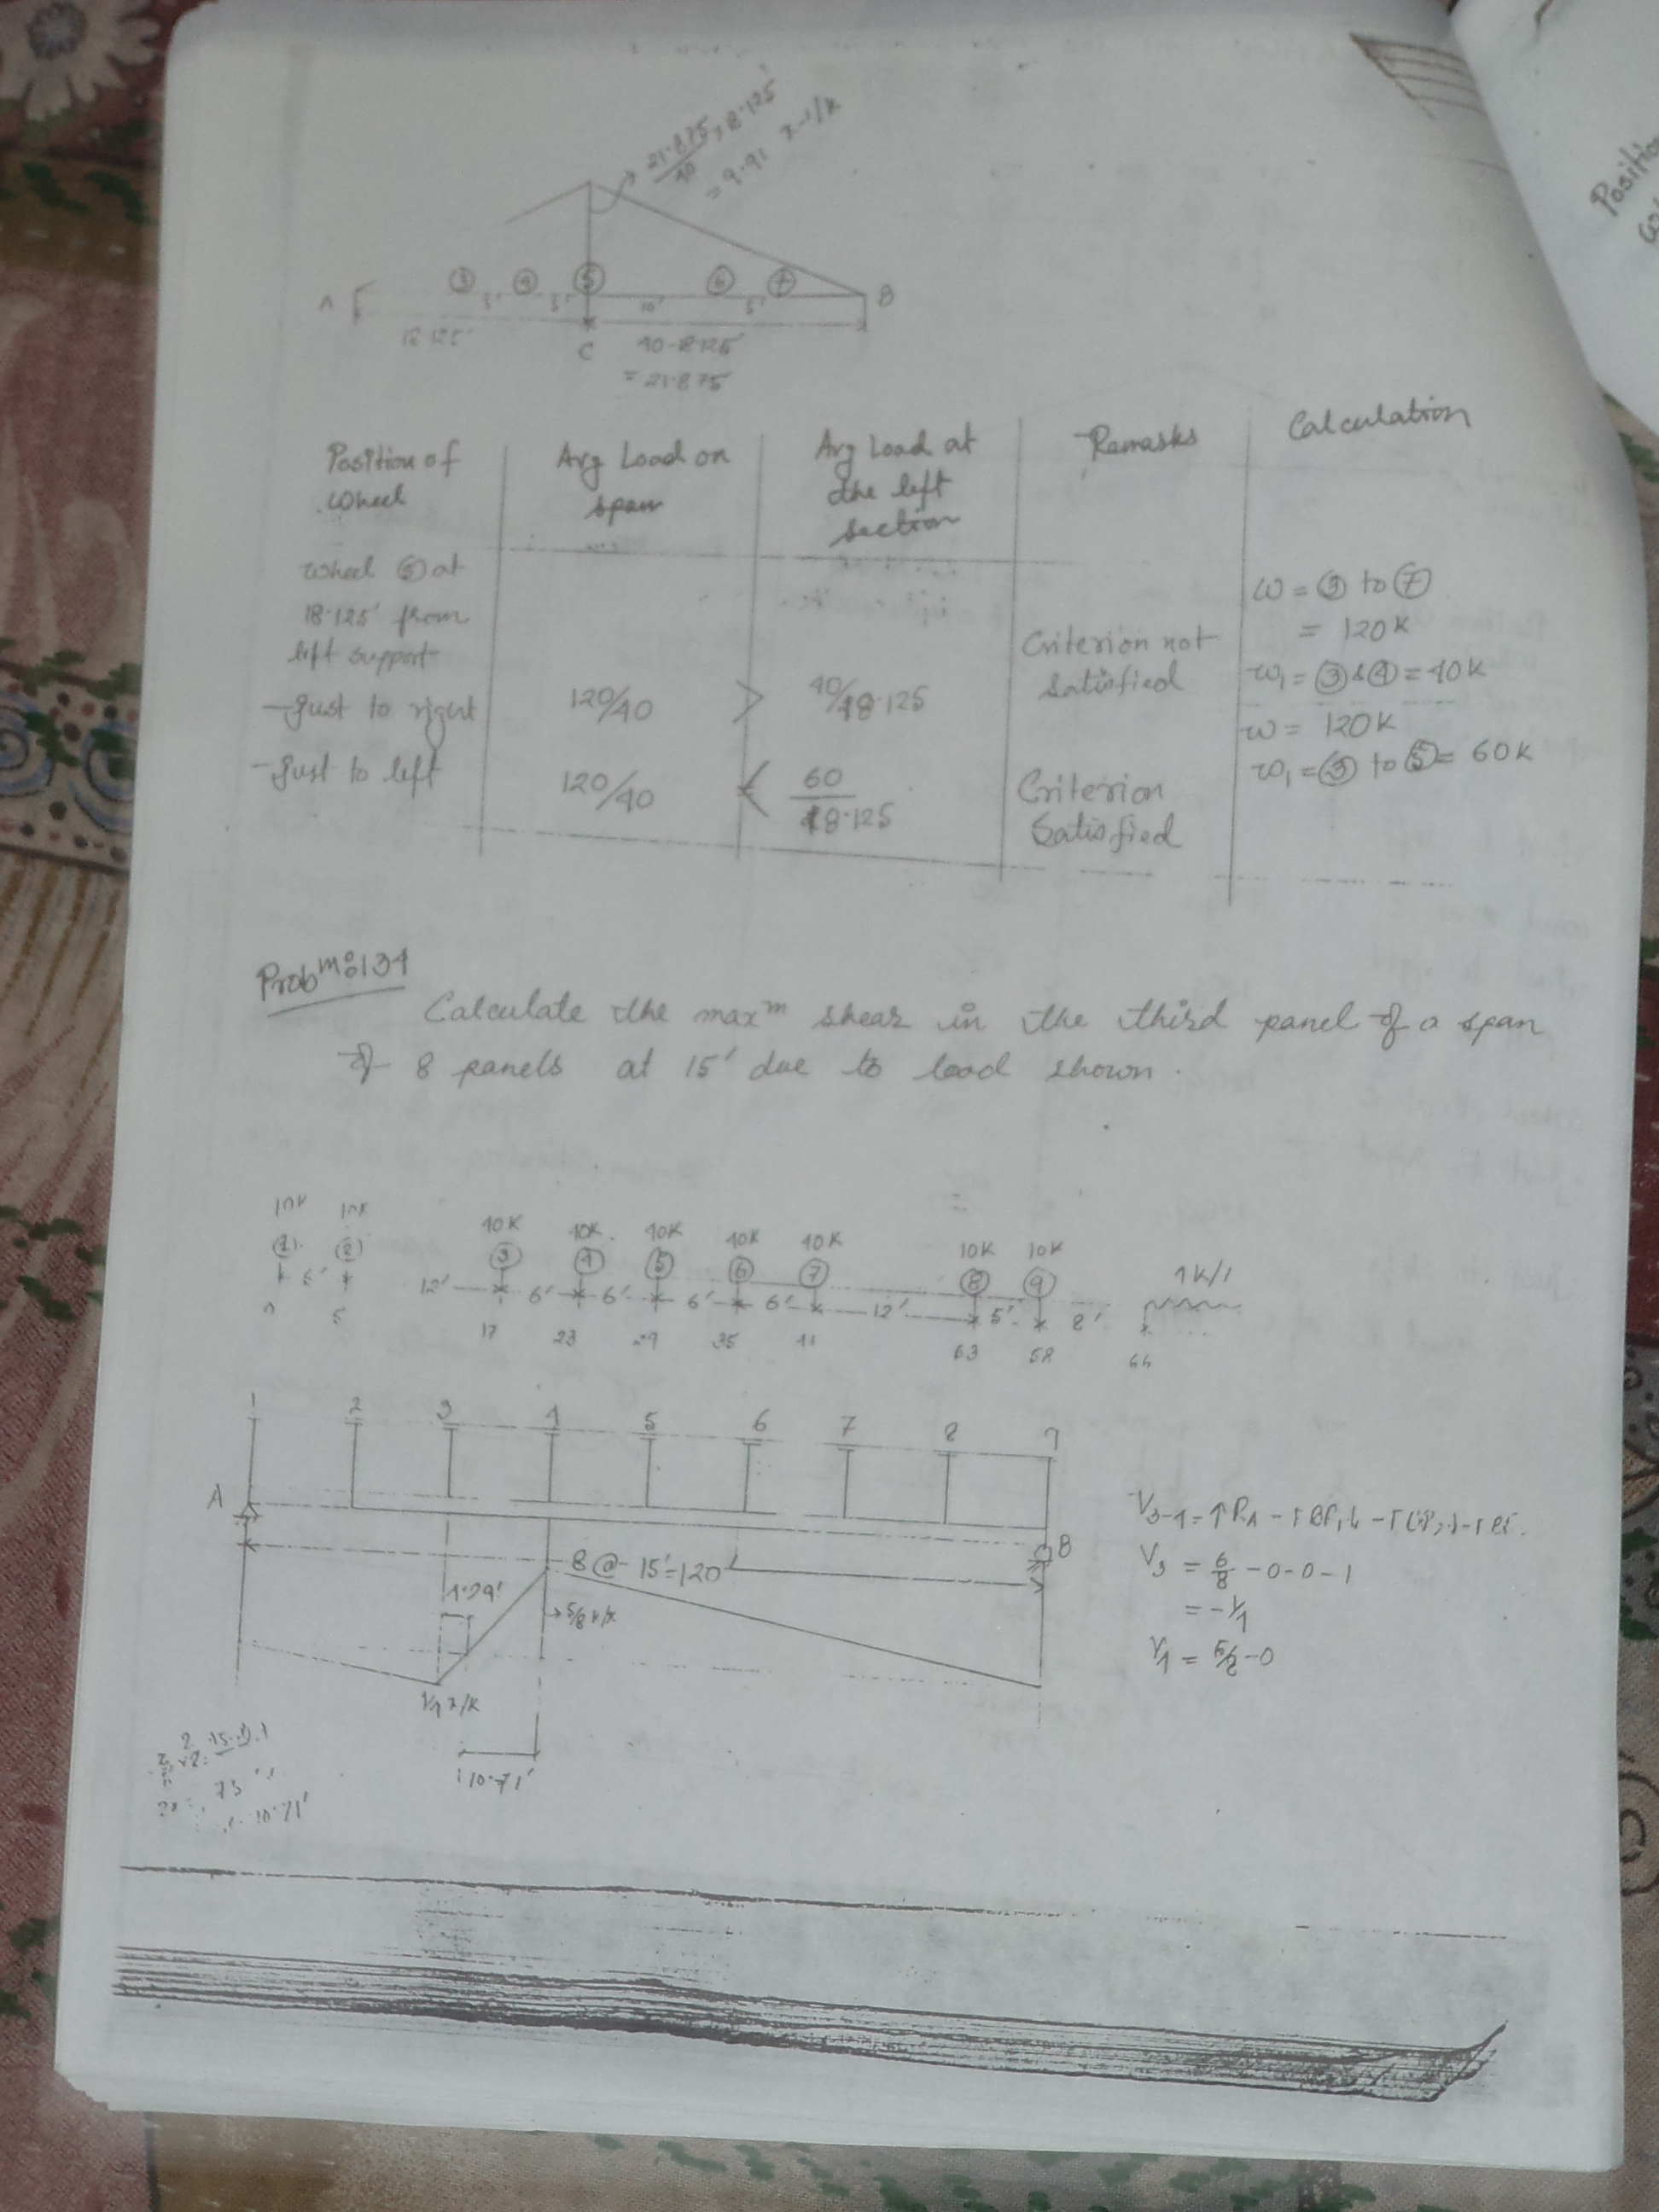 21.875/40 × 8.125
= 9.91 x-1/K
③ ④ ⑤ ⑥ ⑦
A 5' 5' 10' 5' B
18.125' C 40-8.125'
= 21.875
Position of wheel | Avg Load on span | Avg Load at the left section | Remasks | Calculation
wheel ⑤ at
18.125' from
left support
-Just to right 120/40 > 40/18.125 Criterion not Satisfied
w = ③ to ⑦
= 120K
w₁ = ③ & ④ = 40K
-Just to left 120/40 < 60/18.125 Criterion Satisfied
w = 120K
w₁ = ③ to ⑤ = 60K
Probᵐ: 134
Calculate the maxᵐ shear in the third panel of a span
of 8 panels at 15' due to load shown.
10K 10K 40K 40K 40K 40K 40K 10K 10K
① ② ③ ④ ⑤ ⑥ ⑦ ⑧ ⑨ 1K/'
12' 6' 6' 6' 6' 12' 5' 8'
5 17 23 29 35 41 53 58 66
1 2 3 4 5 6 7 8 9
A B
8 @ 15' = 120'
4.29'
5/8 K/K
1/4 K/K
10.71'
V₃₋₄ = ↑RA
V₃ = 6/8 - 0 - 0 - 1
= -1/4
V₄ = 5/8 - 0
10.71'